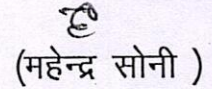 (महेन्द्र सोनी )